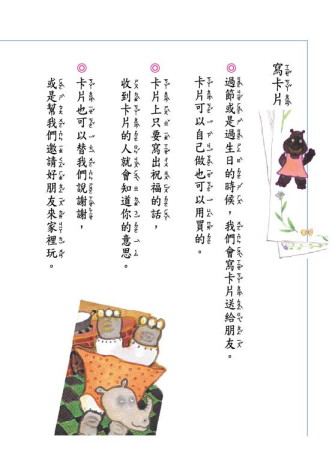 寫卡片
◎過節或是過生日的時候，我們會寫卡片送給朋友。
卡片可以自己做也可以用買的。
◎卡片上只要寫出祝福的話，
收到卡片的人就會知道你的意思。
◎卡片也可以替我們說謝謝，
或是幫我們邀請好朋友來家裡玩。